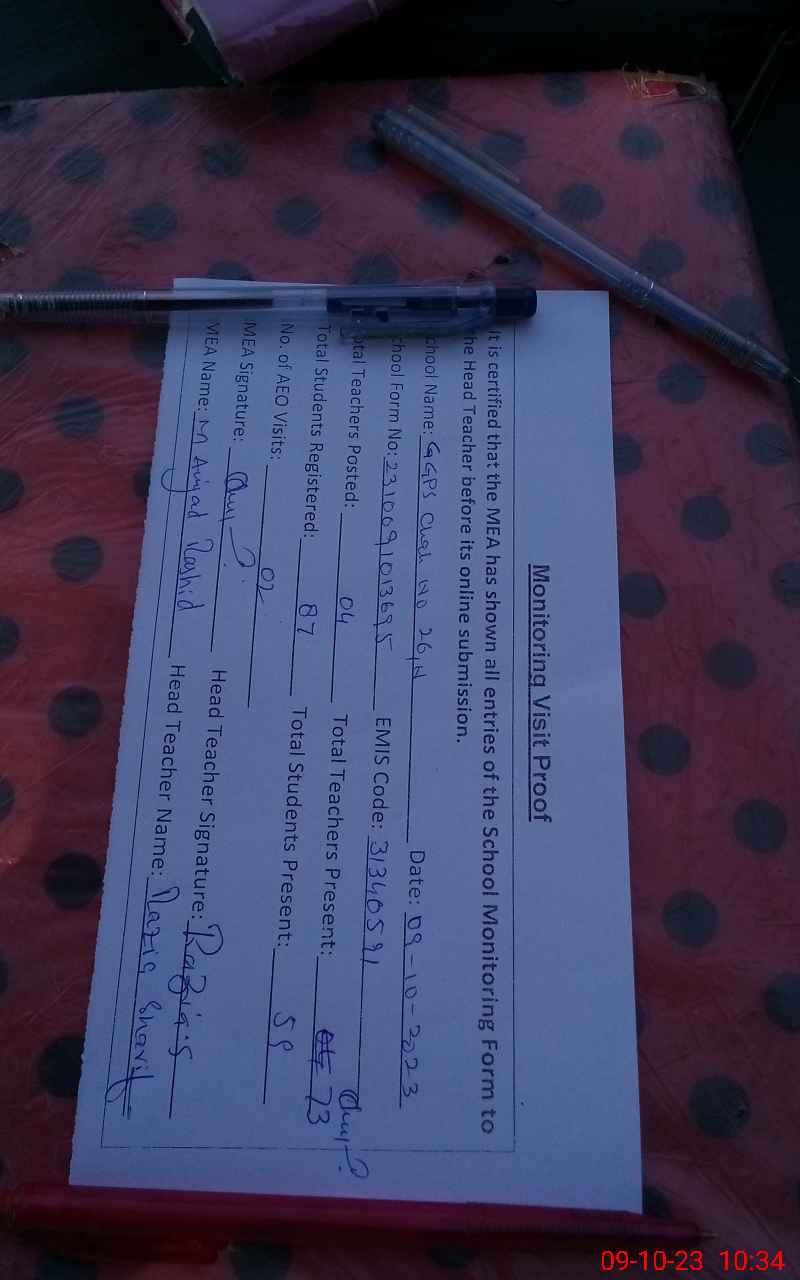 Monitoring Visit Proof
It is certified that the MEA has shown all entries of the School Monitoring Form to
he Head Teacher before its online submission.
chool Name: GGPS Chak No 26,N Date: 09-10-2023
chool Form No: 2310691013695 EMIS Code: 31340591
otal Teachers Posted: 04 Total Teachers Present: 73
Total Students Registered: 87 Total Students Present: 59
No. of AEO Visits: 02
MEA Signature: Head Teacher Signature: Razia.S
MEA Name: M Amjad Rashid Head Teacher Name: Razia Sharif
09-10-23 10:34